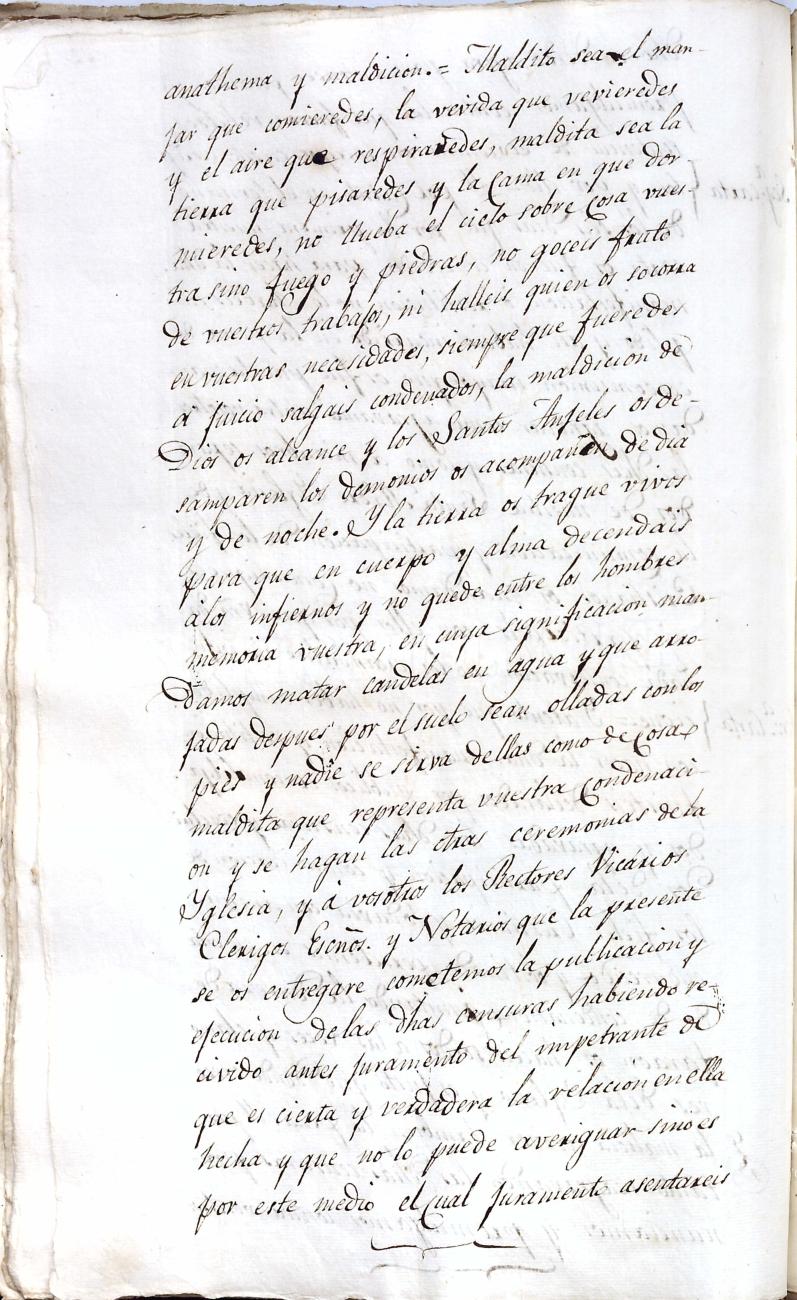 anathema y maldicion.= Maldito sea el man-
jar que comieredes, la vevida que vevieredes
y el aire que respiraredes, maldita sea la
tierra que pisaredes y la Cama en que dor-
mieredes, no llueba el cielo sobre Cosa vues-
tra sino fuego y piedras, no goceis fruto
de vuestros trabajos, ni halleis quien os socorra
en vuestras necesidades, siempre que fueredes
á juicio salgais condenados, la maldicion de
Dios os alcance y los Santos Anjeles os de-
samparen los demonios os acompañen de dia
y de noche. Y la tierra os trague vivos
para que en cuerpo y alma decendais
álos infiernos y no quede entre los hombres
memoria vuestra, en cuya significacion man-
damos matar candelas en agua y que arro-
jadas despues por el suelo sean olladas con los
pies y nadie se sirva dellas como de Cosa
maldita que representa vuestra Condenaci-
on y se hagan las otras ceremonias de la
Yglesia, y á vosotros los Rectores Vicários
Clerigos Escños. y Notarios que la presente
se os entregare cometemos la publicacion y
ejecucion de las dhas censuras habiendo re-
civido antes juramento del impetrante de
que es cierta y verdadera la relacion en ella
hecha y que no lo puede averiguar sino es
por este medio el Cual juramento asentareis